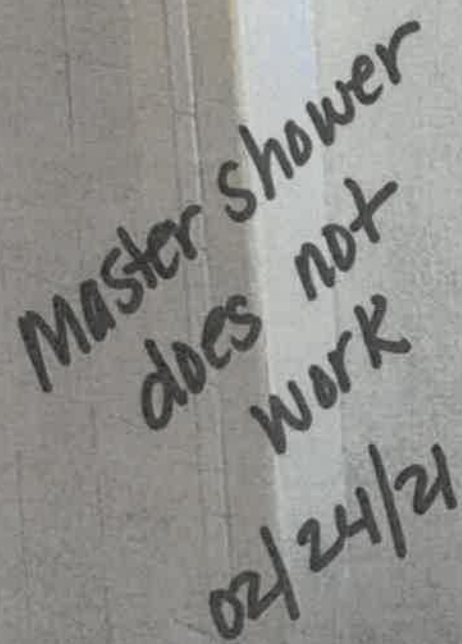 Master shower
does not
work
02/24/21